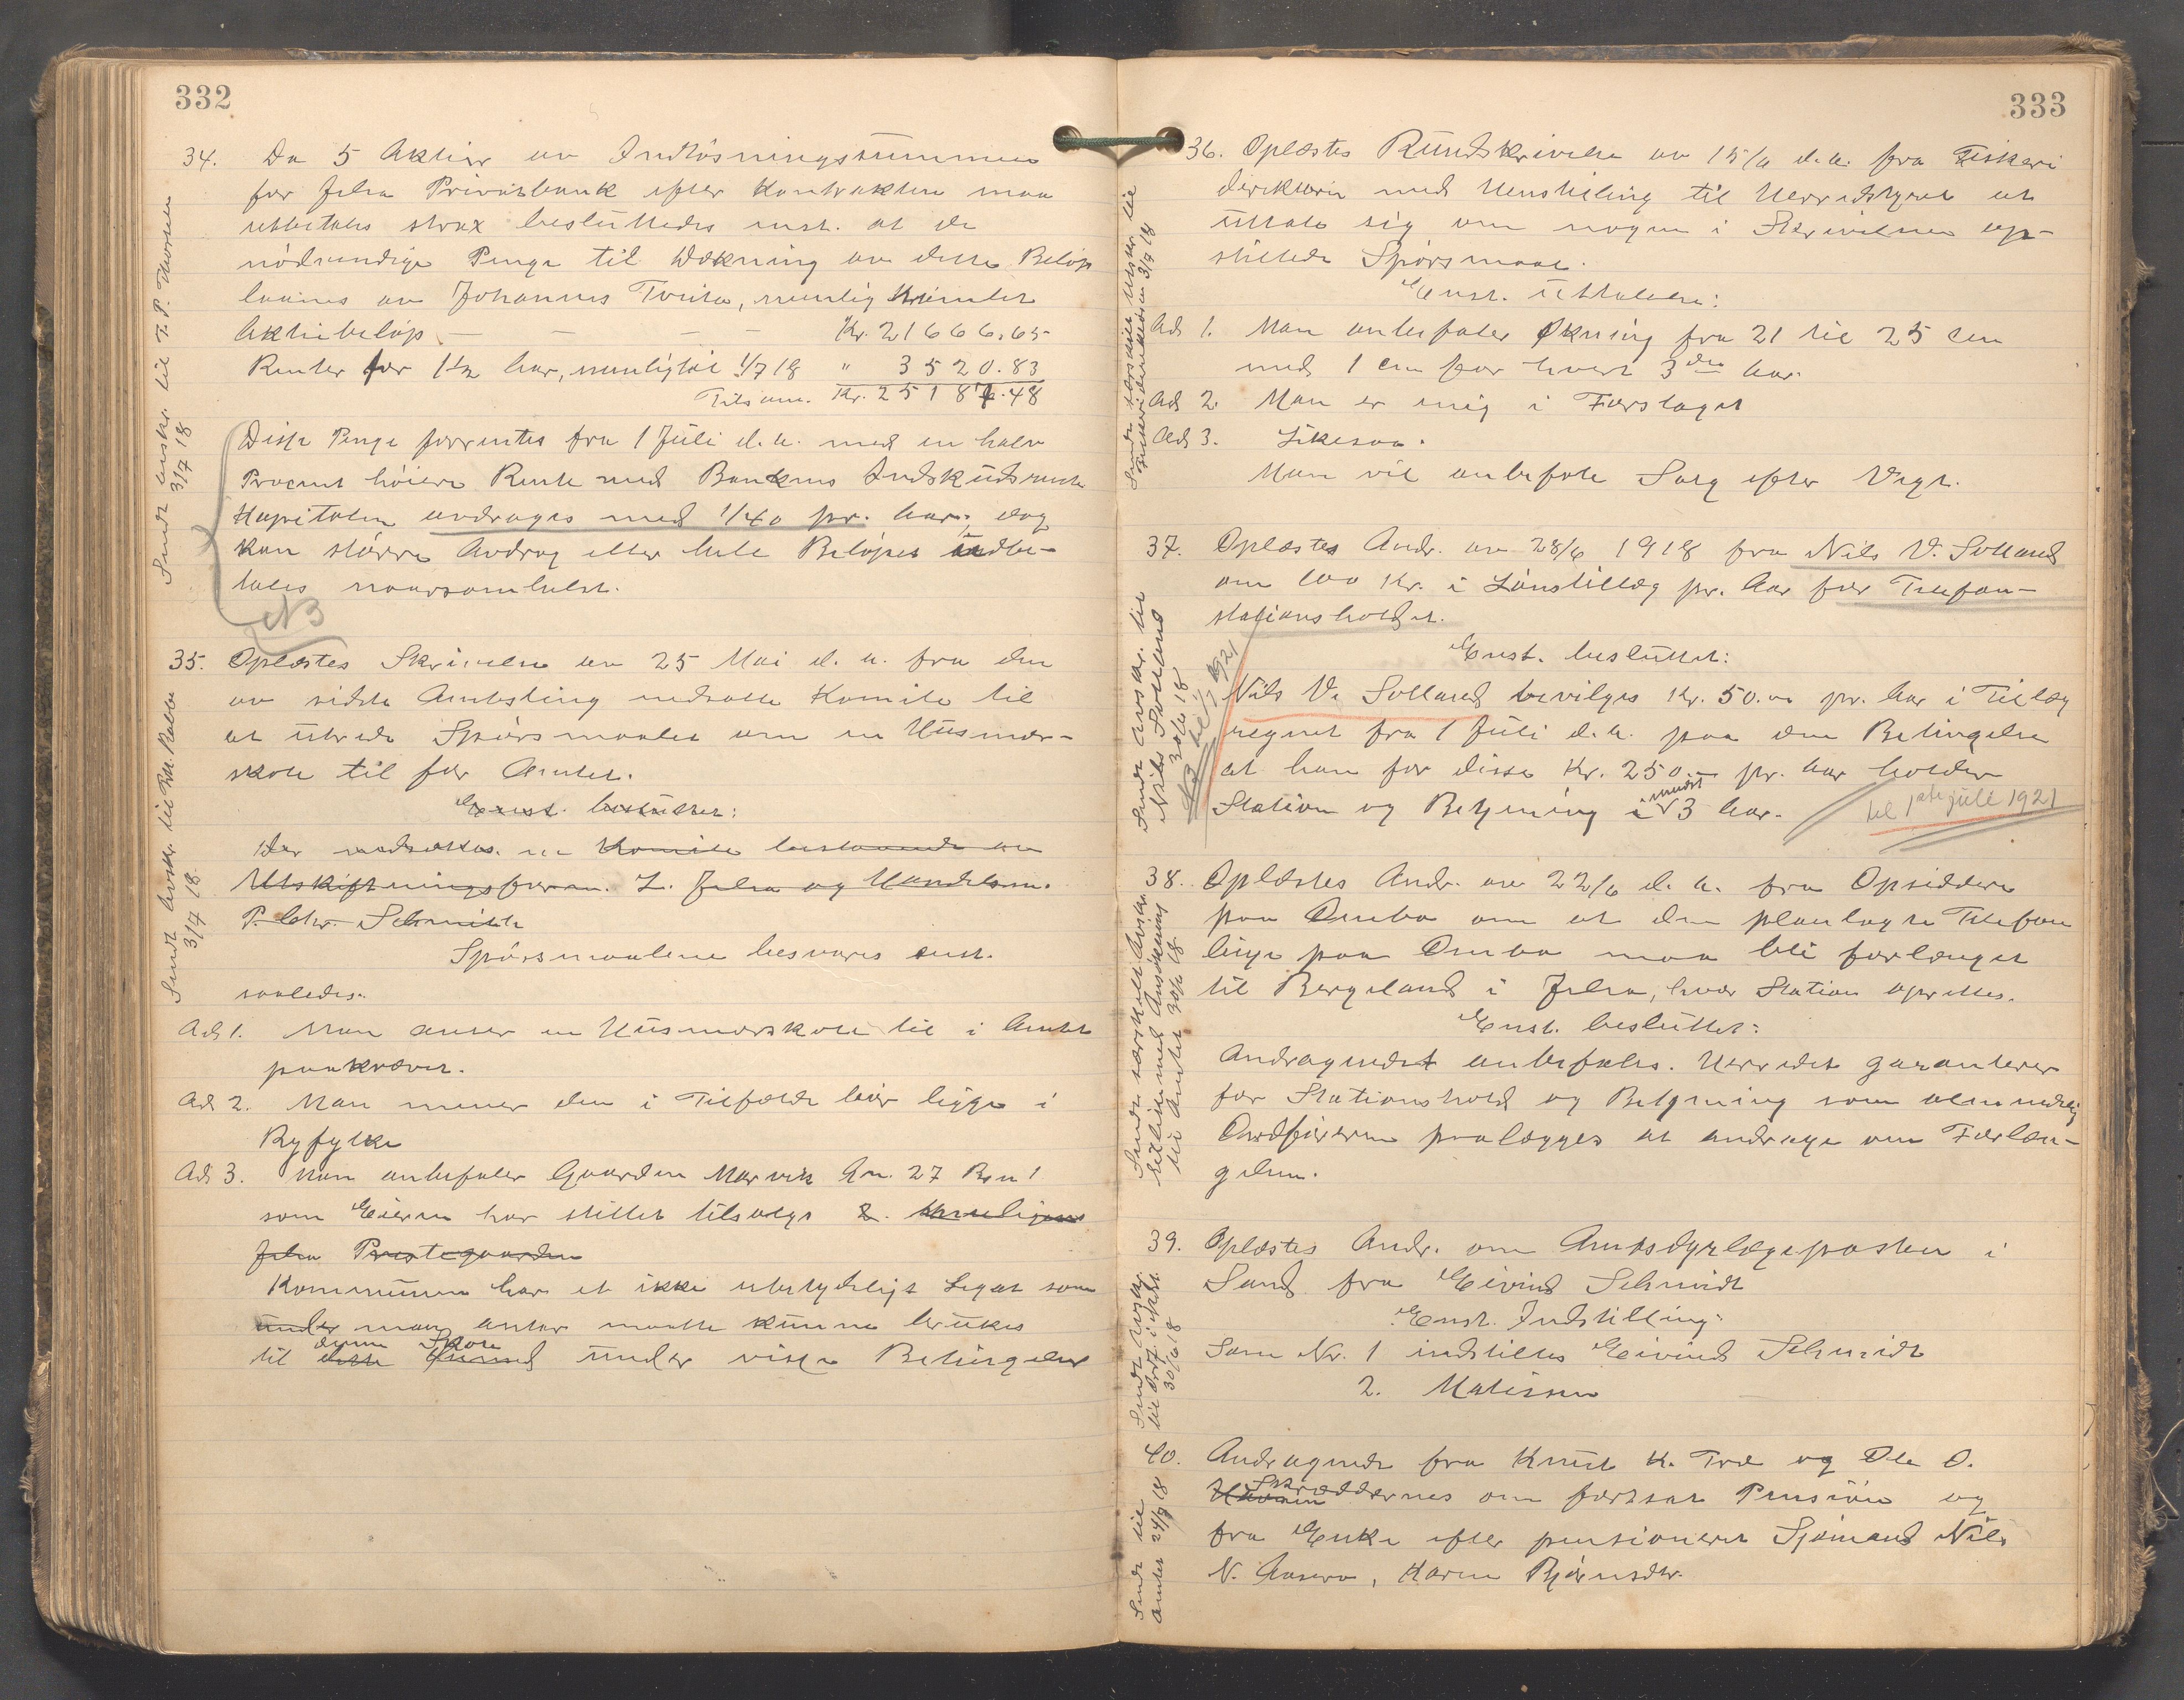 332
34. Da 5 Aktier av Indløsningssummen
for Jelsa Privatbank efter Kontrakten maa
utbetales strax besluttedes enst. at de
nödvendige Penge til Dækning av dette Beløp
laanes av Johannes Tveita, nemlig
Aktiebeløp — — — — Kr. 21666.65
Renter for 1½ Aar, nemlig til 1/7 18 " 3520.83
Tilsam. Kr. 25187.48
Disse Penge forrentes fra 1 Juli d.a. med en halv
Procent høiere Rente end Bankens Indskudsrente
Kapitalen avdrages med 1/40 pr. Aar, dog
kan større Avdrag eller hele Beløpet indbe-
tales naarsomhelst.
NB
Sendt utskr. til T. P. Thorsen
3/7 18
35. Oplæstes Skrivelse av 25 Mai d.a. fra den
av sidste Amtsting nedsatte Komite til
at utrede Spørsmaalet om en Husmor-
skole til for Amtet.
Enst. besluttet:
Der nedsættes en Komite bestaaende av
Utskiftningsform. L. Jelsa og Handelsm.
P. Chr. Schmidt
Spørsmaalene besvares enst.
saaledes:
Ad 1. Man anser en Husmorskole til i Amtet
paakrævet.
Ad 2. Man mener den i Tilfælde bør ligge i
Ryfylke
Ad 3. Man anbefaler Gaarden Marvik Gn. 27 Bn 1
som Eieren har stillet tilsalgs 2.
Jelsa Prestegaarden
Kommunen har et ikke ubetydeligt Legat som
under man antar maatte kunne brukes
denne Skole
til dette under visse Betingelser
Sendt Avskr. til
3/7 18
333
36. Oplæstes Rundskrivelse av 15/6 d.a. fra Fiskeri
direktøren med Henstilling til Herredstyret at
uttale sig om nogen i Skrivelsen op-
stillede Spørsmaal.
Enst. Uttalelse:
Ad 1. Man anbefaler Økning fra 21 til 25 cm
med 1 cm for hvert 3die Aar.
Ad 2. Man er enig i Forslaget
Ad 3. Likesaa.
Man vil anbefale Salg efter Vegt.
Sendt særskilt Utskr. til
Fiskeridirektøren 3/7 18
37. Oplæstes Andr. av 28/6 1918 fra Nils V. Solland
om 100 Kr. i Lønstillæg pr. Aar for Telefon-
stationsholdet.
Enst. besluttet:
Nils V. Solland bevilges Kr. 50.00 pr. Aar i Tillæg
regnet fra 1 Juli d.a. paa den Betingelse
at han for disse Kr. 250.- pr. Aar holder
mindst
Station og Betjening i 3 Aar.
til 1ste juli 1921
Sendt Avskr. til
Nils Solland
30/6 18
NB til 1/7 1921
38. Oplæstes Andr. av 22/6 d.a. fra Opsiddere
paa Ombo om at den planlagte Telefon
linje paa Ombo maa bli forlænget
til Bergeland i Jelsa, hvor Station oprettes.
Enst. besluttet:
Andragendet anbefales. Herredet garanterer
for Stationshold og Betjening som almindelig
Ordføreren paalægges at andrage om Forlæn-
gelsen.
Sendt særskilt Avskr.
med Ansökning
til Amtet 30/6 18
39. Oplæstes Andr. om Amtsdyrlægeposten i
Sand fra Eivind Schmidt
Enst. Indstilling:
Som Nr. 1 indstilles Eivind Schmidt
2. Matissen
Sendt Avskr.
til Ordf. i
30/6 18
40. Andragende fra Knut K. Træ og Ole O.
Skræddernes om fortsat Pension og
fra Enke efter pensioneret Sjømand Nils
N. Aasern, Karen Bjørnsdtr.
Sendt til
Amtet 24/9 18